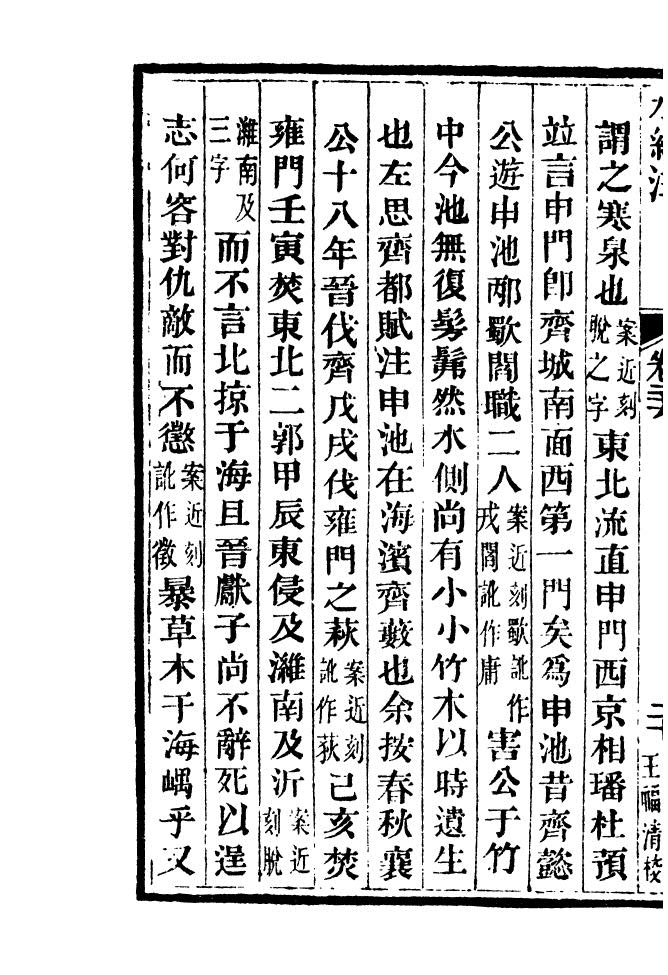 水經注 卷二十六 二十 王福清校
謂之寒泉也案近刻脫之字東北流直申門西京相璠杜預
竝言申門卽齊城南面西第一門矣爲申池昔齊懿
公遊申池邴歜閻職二人案近刻歜訛作戎閻訛作庸害公于竹
中今池無復髣髴然水側尚有小小竹木以時遺生
也左思齊都賦注申池在海濱齊藪也余按春秋襄
公十八年晉伐齊戊戌伐雍門之萩案近刻訛作荻己亥焚
雍門壬寅焚東北二郭甲辰東侵及濰南及沂案近刻脫
濰南及三字而不言北掠于海且晉獻子尚不辭死以逞
志何容對仇敵而不懲案近刻訛作徵暴草木于海嵎乎又